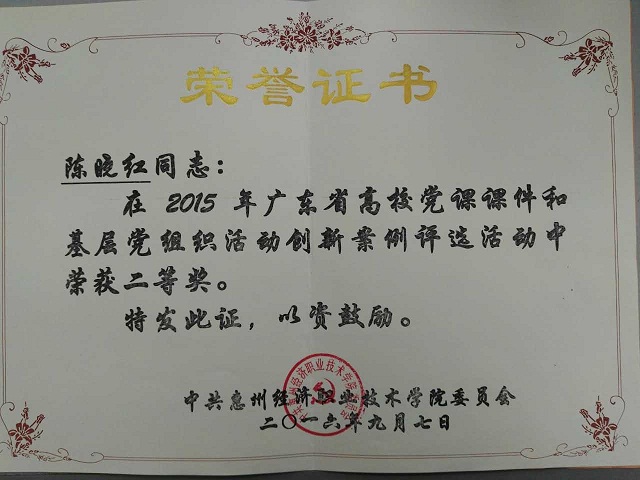 荣誉证书
陈晓红同志：
在 2015 年广东省高校党课课件和
基层党组织活动创新案例评选活动中
荣获二等奖。
特发此证，以资鼓励。
中共惠州经济职业技术学院委员会
二〇一六年九月七日